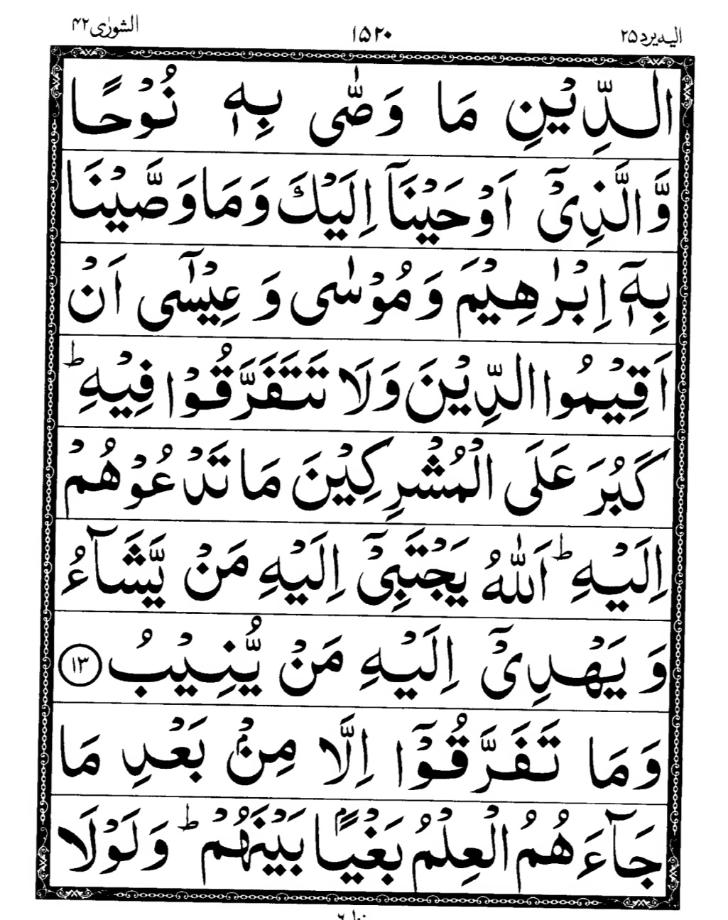 الیه یرد ۲۵ ۱۵۲۰ الشورٰی ۴۲
الدِّيْنِ مَا وَصّٰى بِهٖ نُوْحًا
وَّالَّذِىْۤ اَوْحَيْنَاۤ اِلَيْكَ وَمَا وَصَّيْنَا
بِهٖۤ اِبْرٰهِيْمَ وَمُوْسٰى وَ عِيْسٰٓى اَنْ
اَقِيْمُوا الدِّيْنَ وَلَا تَتَفَرَّقُوْا فِيْهِ ؕ
كَبُرَ عَلَى الْمُشْرِكِيْنَ مَا تَدْعُوْهُمْ
اِلَيْهِ ؕ اَللّٰهُ يَجْتَبِىْۤ اِلَيْهِ مَنْ يَّشَآءُ
وَ يَهْدِىْۤ اِلَيْهِ مَنْ يُّنِيْبُ ۱۳
وَمَا تَفَرَّقُوْۤا اِلَّا مِنْۢ بَعْدِ مَا
جَآءَهُمُ الْعِلْمُ بَغْيًۢا بَيْنَهُمْ ؕ وَلَوْلَا